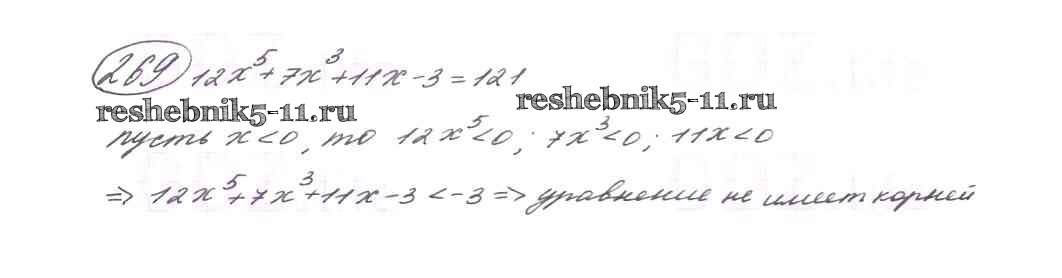 269 12x⁵+7x³+11x-3=121
reshebnik5-11.ru reshebnik5-11.ru
пусть x<0, то 12x⁵<0; 7x³<0; 11x<0
⇒ 12x⁵+7x³+11x-3<-3 ⇒ уравнение не имеет корней